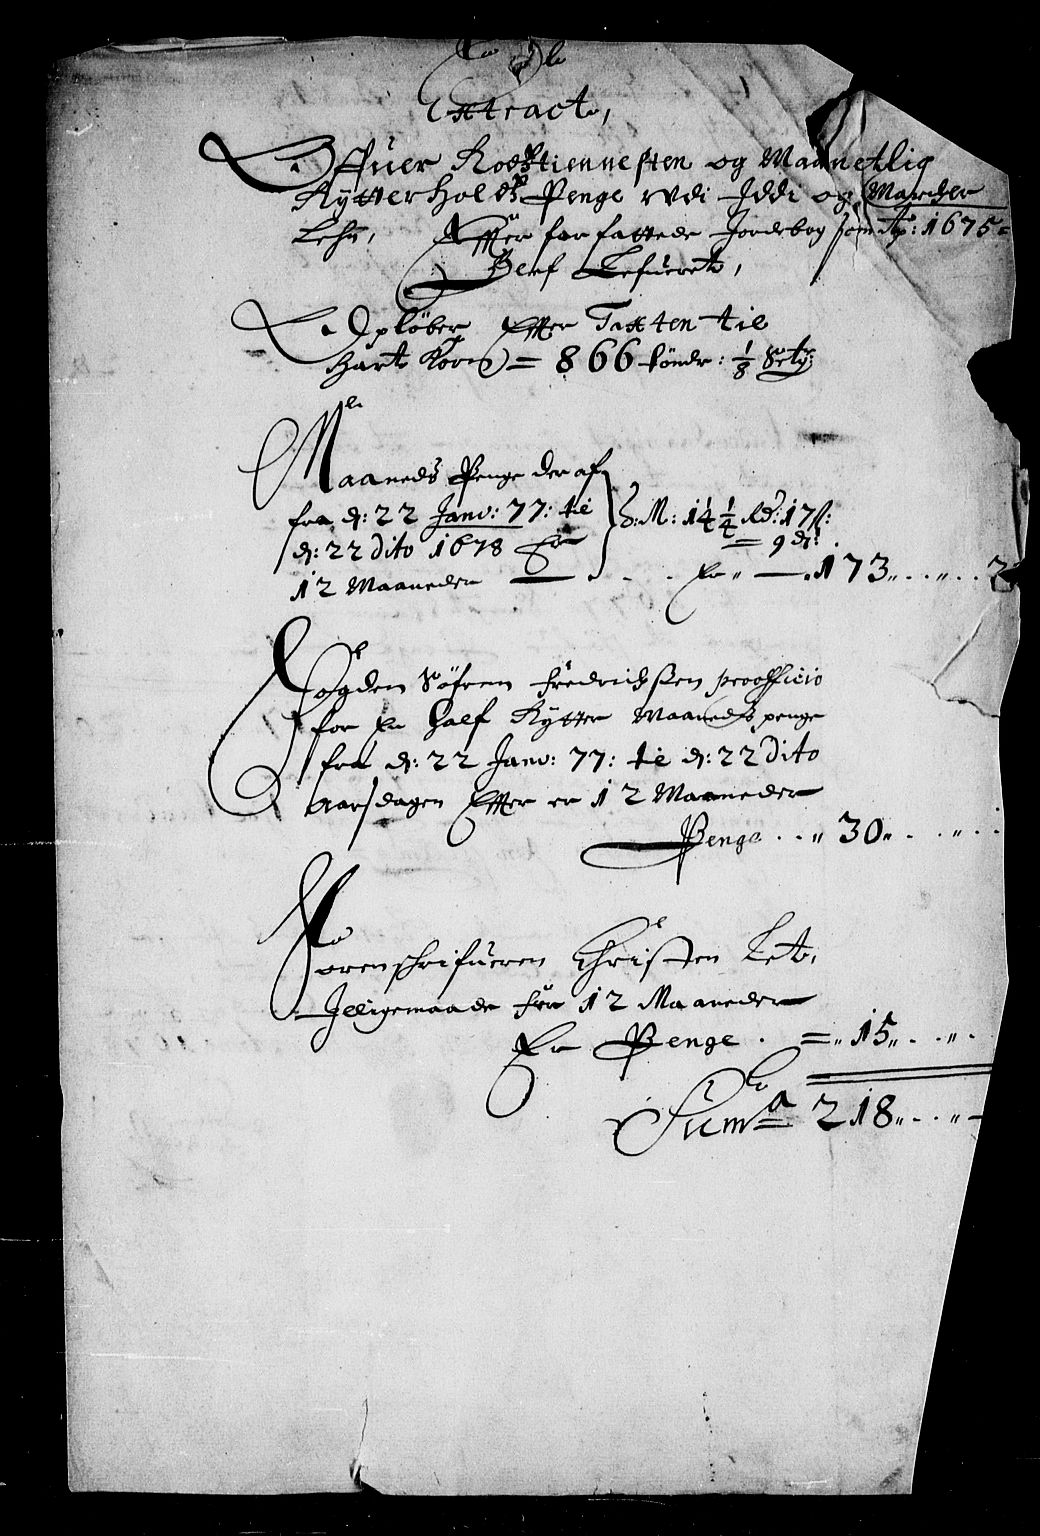 Extract,
Offuer Rostiennesten og Maanetlig
Rytterholds Penge udi Iddi og Marcher
Lehn, Effter forfattede Jordebog som Ao: 1675
Blef Lefueret,
Opløber Effter Taxten til
Hart Korn = 866 tønder: 1/8 Setg:
Maaneds Penge der af
fra d: 22 Janv: 77: til
d: 22 dito 1678 Er
12 Maaneder
M: 14 1/4 Rd: 17 ß:
9 d:
Er 173 " . . " . . 2
Fogden Søfren Fredrichssen pro officio
for En Half Rytter Maaneds penge
fra d: 22 Janv: 77: til d: 22 dito
Aarsdagen Effter er 12 Maaneder
Penge . . " 30 " . . " . .
Sorenschrifueren Christen
Jlligemaade for 12 Maaneder
Er Penge . = " 15 " . . " .
Suma 218 " . . " -